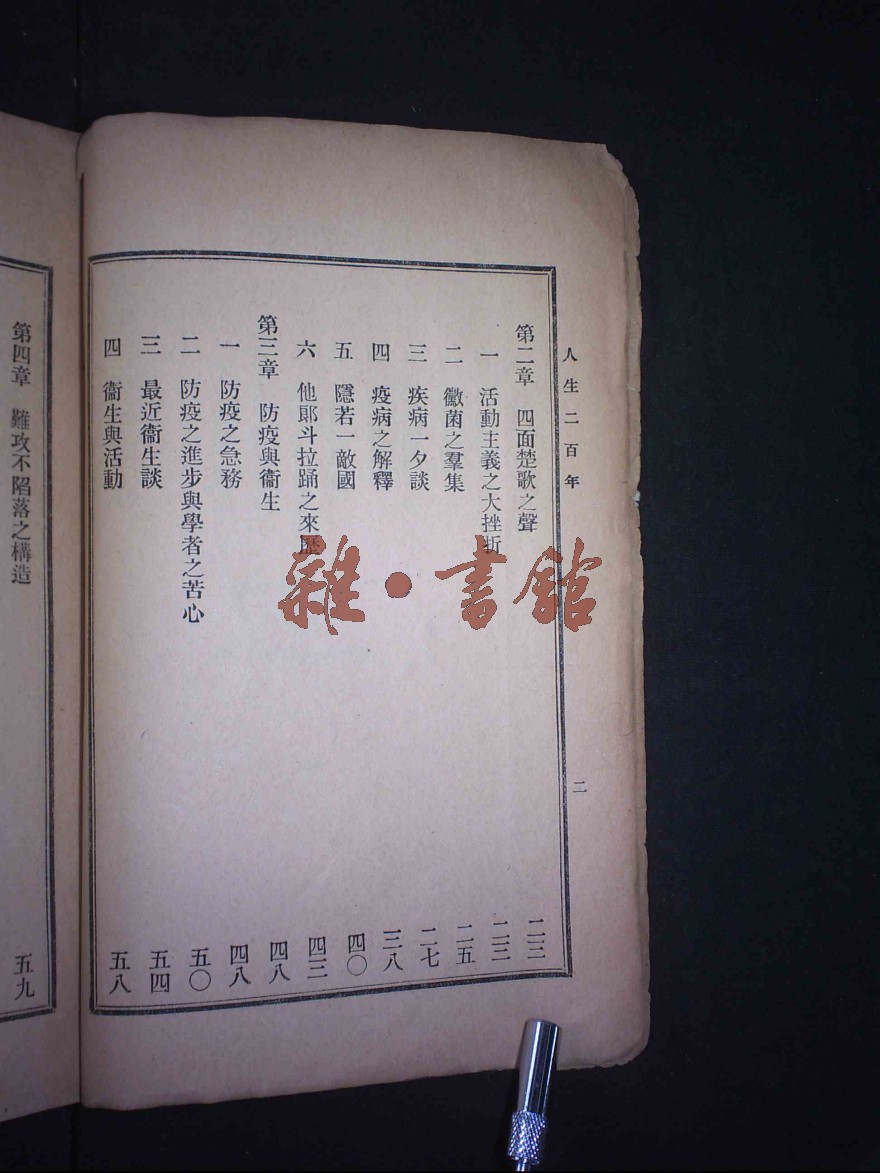 人生二百年
二
第二章 四面楚歌之聲 二三
一 活動主義之大挫折 二三
二 黴菌之羣集 二五
三 疾病一夕談 二七
四 疫病之解釋 三八
五 隱若一敵國 四〇
六 他郎斗拉踊之來歷 四三
第三章 防疫與衞生 四八
一 防疫之急務 四八
二 防疫之進步與學者之苦心 五〇
三 最近衞生談 五四
四 衞生與活動 五八
第四章 難攻不陷落之構造 五九
雜·書館